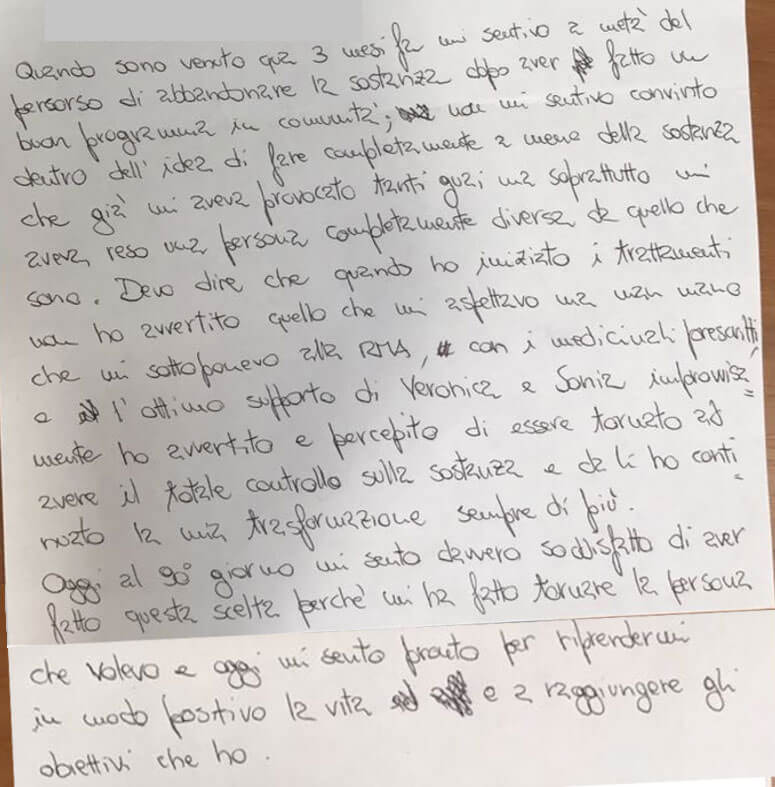 Quando sono venuto qua 3 mesi fa mi sentivo a metà del
persorso di abbandonare la sostanza dopo aver fatto un
buon programma in comunità; non mi sentivo convinto
dentro dell'idea di fare completamente a meno della sostanza
che già mi aveva provocato tanti guai ma soprattutto mi
aveva reso una persona completamente diversa da quello che
sono. Devo dire che quando ho iniziato i trattamenti
non ho avvertito quello che mi aspettavo ma man mano
che mi sottoponevo alla RMA, con i medicinali prescritti
e l'ottimo supporto di Veronica e Sonia improvvisa=
mente ho avvertito e percepito di essere tornato ad
avere il totale controllo sulla sostanza e da lì ho conti=
nuato la mia trasformazione sempre di più.
Oggi al 90° giorno mi sento davvero soddisfatto di aver
fatto questa scelta perché mi ha fatto tornare la persona
che volevo e oggi mi sento pronto per riprendermi
in modo positivo la vita e a raggiungere gli
obiettivi che ho.